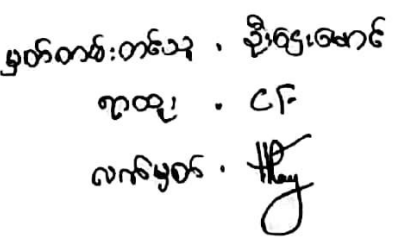 မှတ်တမ်းတင်သူ . ဦးဌေးမောင်
ရာထူး . CF
လက်မှတ် .